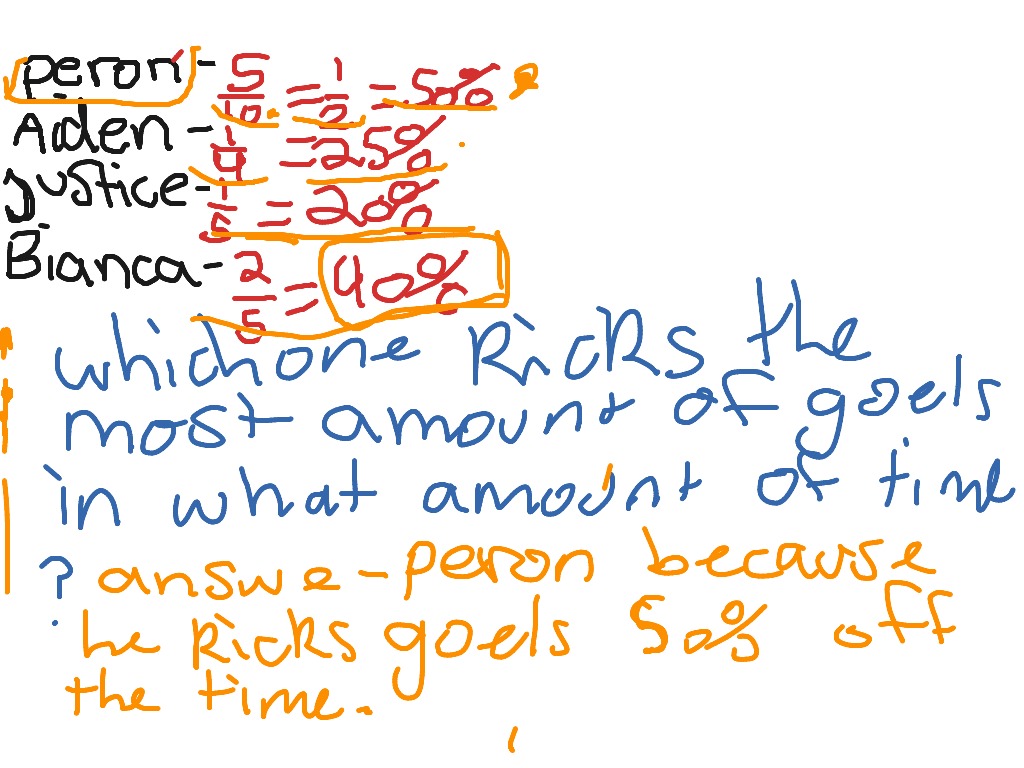 peron - 5/10 = 1/2 = 50%
Aiden - 1/4 = 25%
justice - 1/5 = 20%
Bianca - 2/5 = 40%
which one kicks the
most amount of goels
in what amount of time
? answe - peron because
he kicks goels 50% off
the time.